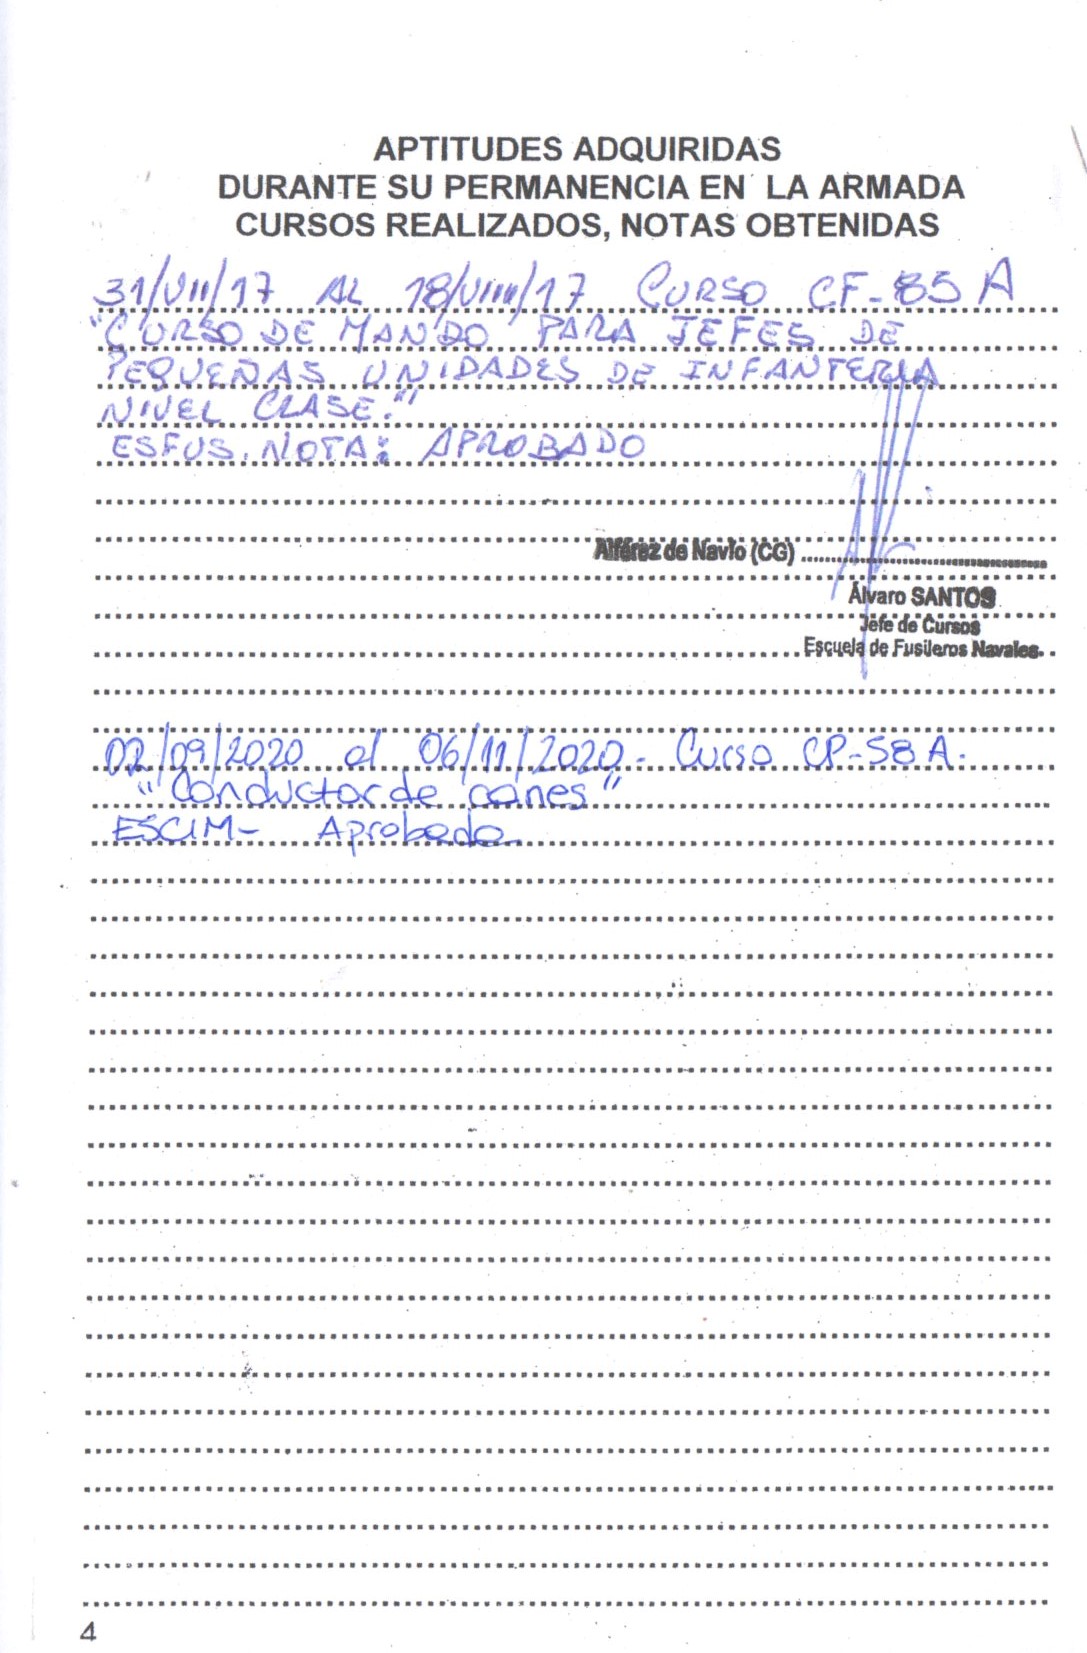 APTITUDES ADQUIRIDAS
DURANTE SU PERMANENCIA EN LA ARMADA
CURSOS REALIZADOS, NOTAS OBTENIDAS
31/VII/17 AL 18/VIII/17 CURSO CF-85 A
"CURSO DE MANDO PARA JEFES DE
PEQUEÑAS UNIDADES DE INFANTERIA
NIVEL CLASE."
ESFUS. NOTA: APROBADO
Alférez de Navío (CG)
Álvaro SANTOS
Jefe de Cursos
Escuela de Fusileros Navales
02/09/2020 al 06/11/2020- Curso CP-58 A.
"Conductor de canes"
ESCIM- Aprobado
4